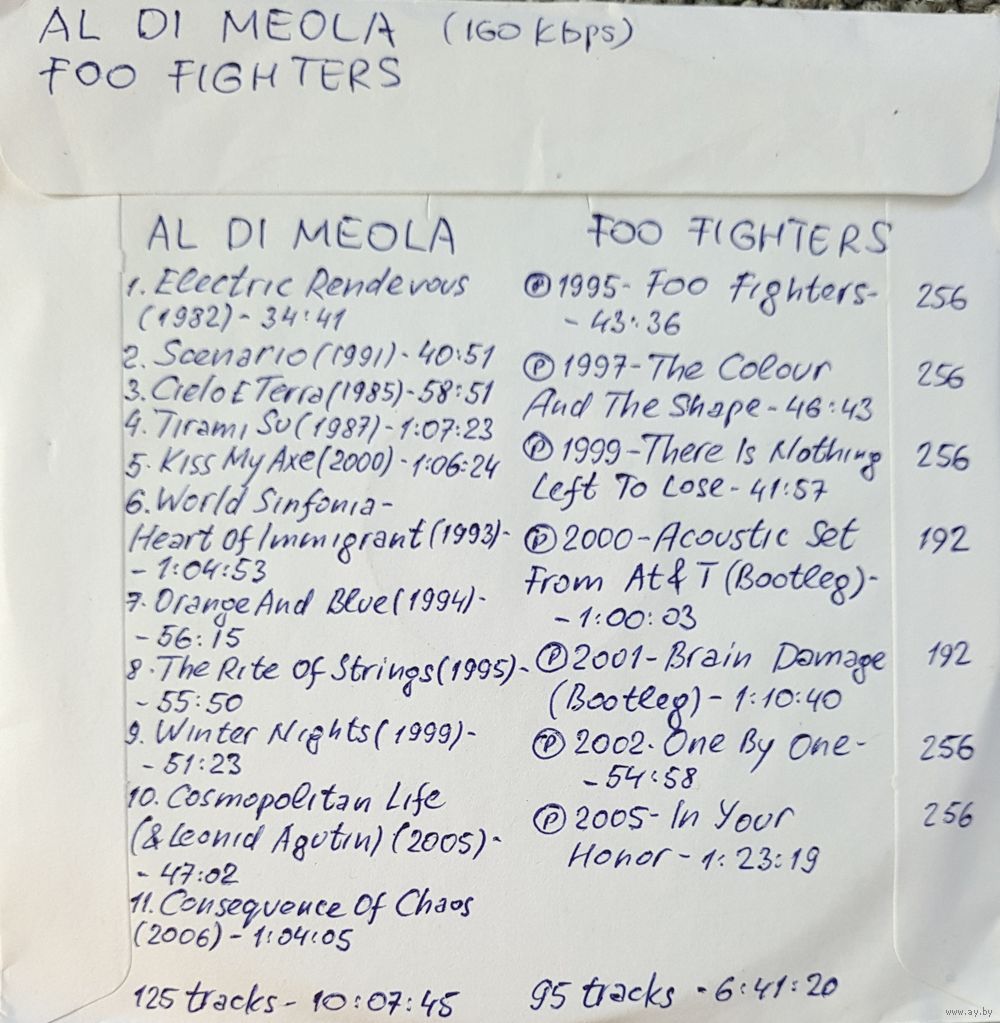 AL DI MEOLA (160 Kbps)
FOO FIGHTERS
AL DI MEOLA
1. Electric Rendevous
(1982) - 34:41
2. Scenario (1991) - 40:51
3. Cielo E Terra (1985) - 58:51
4. Tirami Su (1987) - 1:07:23
5. Kiss My Axe (2000) - 1:06:24
6. World Sinfonia -
Heart Of Immigrant (1993) -
- 1:04:53
7. Orange And Blue (1994) -
- 56:15
8. The Rite Of Strings (1995) -
- 55:50
9. Winter Nights (1999) -
- 51:23
10. Cosmopolitan Life
(& Leonid Agutin) (2005) -
- 47:02
11. Consequence Of Chaos
(2006) - 1:04:05
125 tracks - 10:07:45
FOO FIGHTERS
Ⓟ 1995 - Foo Fighters - 256
- 43:36
Ⓟ 1997 - The Colour 256
And The Shape - 46:43
Ⓟ 1999 - There Is Nothing 256
Left To Lose - 41:57
Ⓟ 2000 - Acoustic Set 192
From At & T (Bootleg) -
- 1:00:03
Ⓟ 2001 - Brain Damage 192
(Bootleg) - 1:10:40
Ⓟ 2002 - One By One - 256
- 54:58
Ⓟ 2005 - In Your 256
Honor - 1:23:19
95 tracks - 6:41:20
www.ay.by